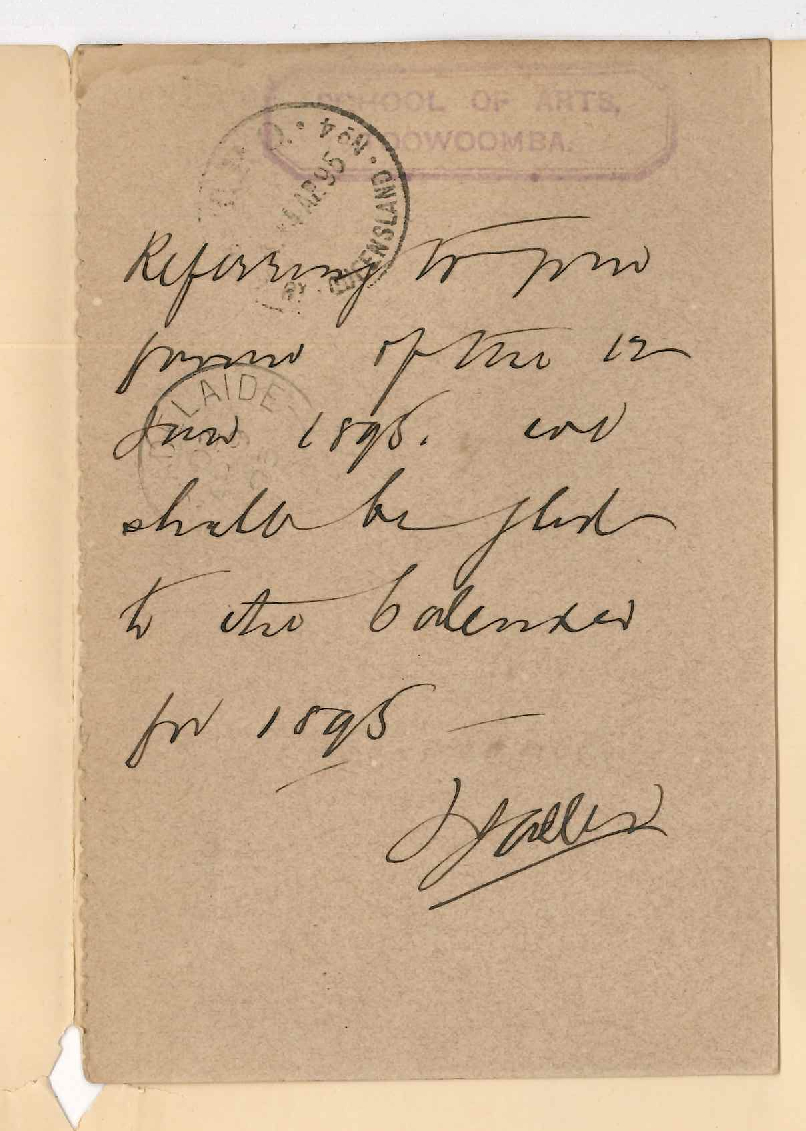 SCHOOL OF ARTS,
TOOWOOMBA.
QUEENSLAND · No 4
AP 95
ADELAIDE
Referring to your
of the 12
June 1895. we
shall be glad
to the Calender
for 1895 —